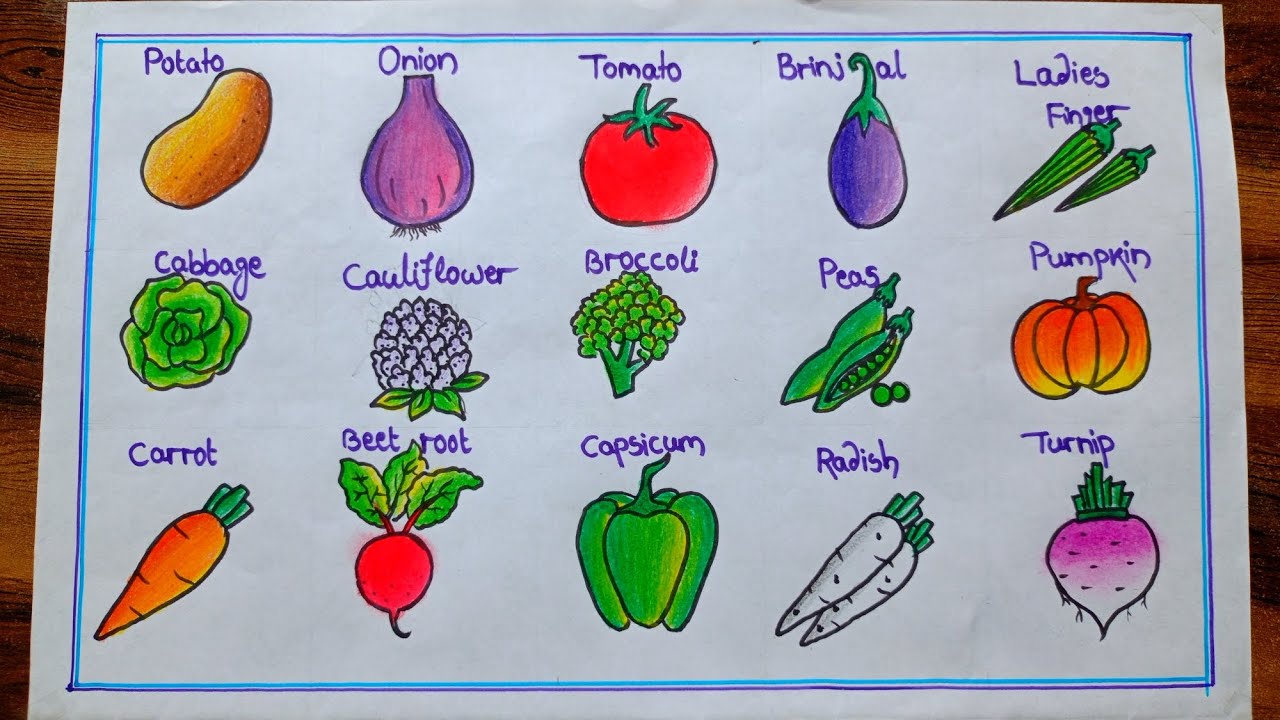 Potato
Onion
Tomato
Brinjal
Ladies
Finger
Cabbage
Cauliflower
Broccoli
Peas
Pumpkin
Carrot
Beet root
Capsicum
Radish
Turnip